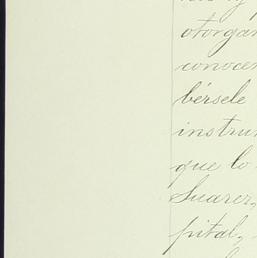 otorgan
conocer
bérsele
instru
que lo
Suarez,
pital,